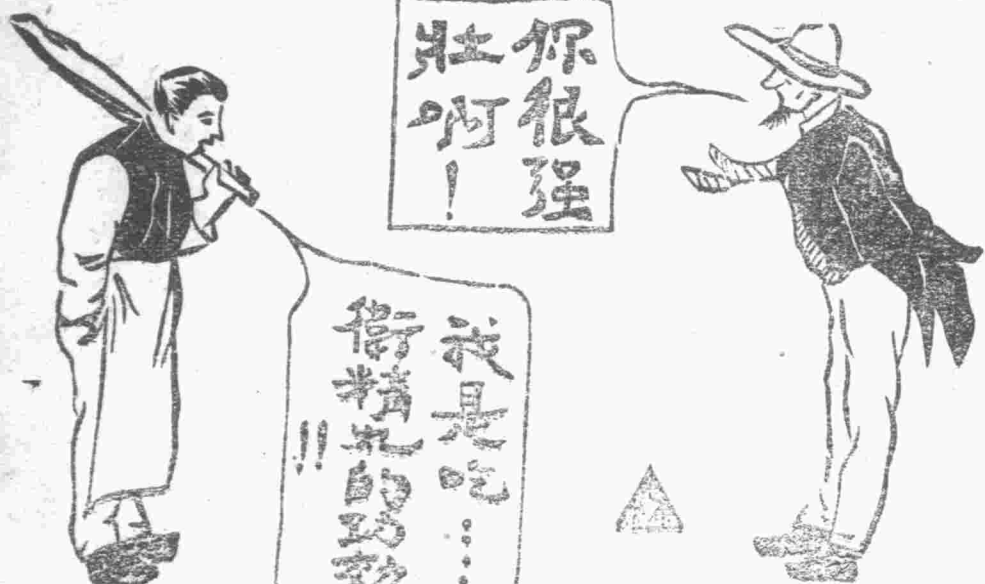 你很强
壯啊!
我是吃……
衛精丸的功效
!!